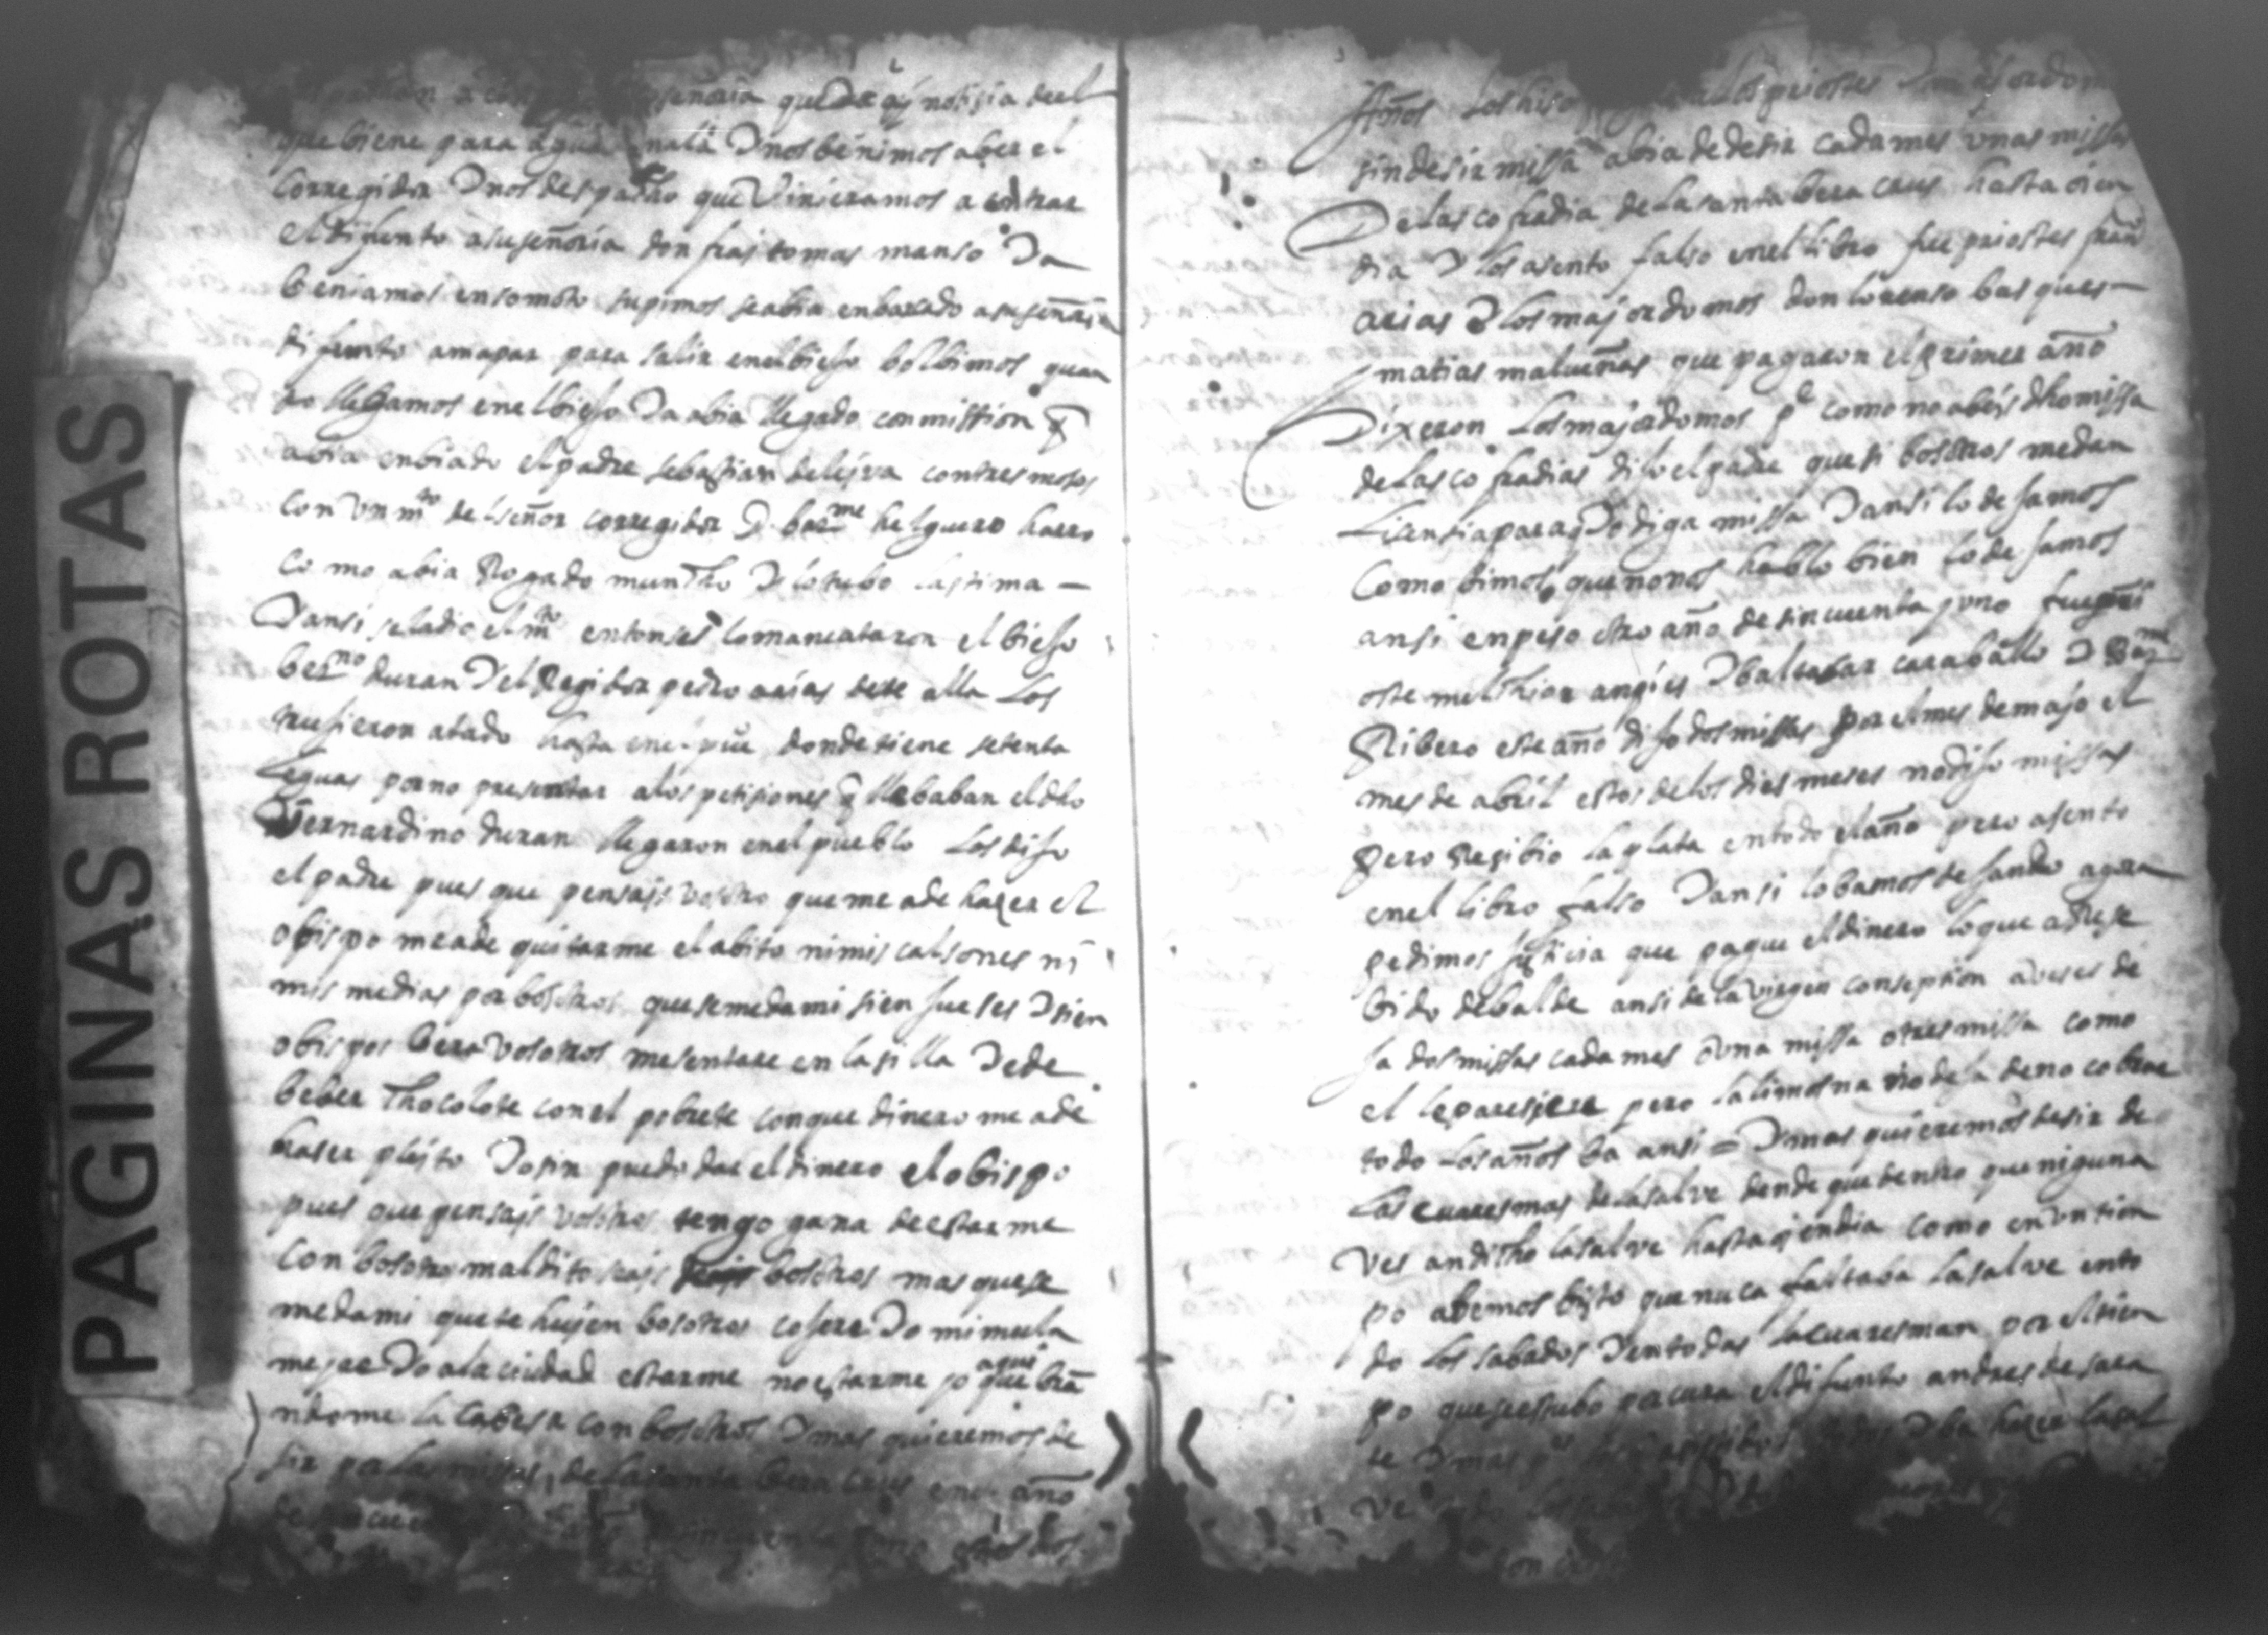 PAGINAS ROTAS
señoria que ay notisia deel
que biene para nala Y nos benimos a ber el
corregidor Y nos despacho que Vinieramos a
el difunto a su señoria don frai tomas manso Ya
beniamos en supimos se abia enbarcado a su señoria
difunto amapar para salir en el biejo bolbimos quan
do llegamos en el biejo Ya abia llegado con mission q
abia enbiado el padre sebastian de leyva con tres mosos
con vn mto del señor corregidor D barme helguero
como abia Rogado muncho Y lo tubo lastima —
Y ansi se la dio el mto entonses lo maneataron el biejo
berno duran Y el Regidor pedro arias desde alla los
trujieron atado hasta en el puo donde tiene setenta
leguas por no presentar a los petisiones q llebaban el dho
Vernardino duran llegaron en el pueblo los dijo
el padre pues que pensais vosotro que me a de hazer el
obispo me a de quitarme el abito ni mis calsones ni
mis medias por bosotros que se me da mi sien jueses Y sien
obispos bera vosotros me sentare en la silla Y e de
beber chocolate con el pobrete con que dinero me a de
haser pleyto Yo sin puedo dar el dinero el obispo
pues que pensais vosotros tengo gana de estarme
con bosotro maldito seais bosotros mas que se
me da mi que se huyen bosotros cojere Yo mi mula
me yre Yo a la ciudad estarme no estarme yo aqui quebra
ndome la cabesa con bosotros Y mas quieremos de
sir por las missas de la santa bera crus en el año
los hiso los priostes mayordom
sin desir missa abia de desir cada mes unas missas
De las cofradia de la santa bera crus hasta oi en
dia Y los asento falso en el libro fue priostes fran
arias Y los mayordomos don lorenso basques —
matias malueñas que pagaron el primer año
Dixeron los mayordomos pe como no abeis dho missa
de las cofradias dijo el padre que si bosotros me dan
Lisensia para q Yo diga missa Y ansi lo dejamos
Como bimos que no nos hablo bien lo dejamos
ansi enpeso otro año de sincuenta y vno fue pri
oste melchior angies Y baltasar caraballo Y Barme
Ribero este año dijo dos missas por el mes de mayo el
mes de abril estos de los dies meses no dijo missas
Pero Resibio la plata en todo el año pero asento
en el libro falso Y ansi lo bamos dejando agora
pedimos justicia que pague el dinero lo que a Rese
bido debalde ansi de la virgen consepsion a veses de
ja dos missas cada mes o vna missa o tres missa como
el le paresiere pero la limosna no deja de no cobrar
todo los años ba ansi = Y mas quieremos desir de
Las cuaresmas de la salve dende que hentro que niguna
ves an dicho la salve hasta q en dia como en vn tien
po abemos bisto que nuca faltava la salve en to
do los sabados Y en todas la cuaresman por el tien
po que se estubo por cura el difunto andres de sara
te Y mas Y ba hazer la sal
ve